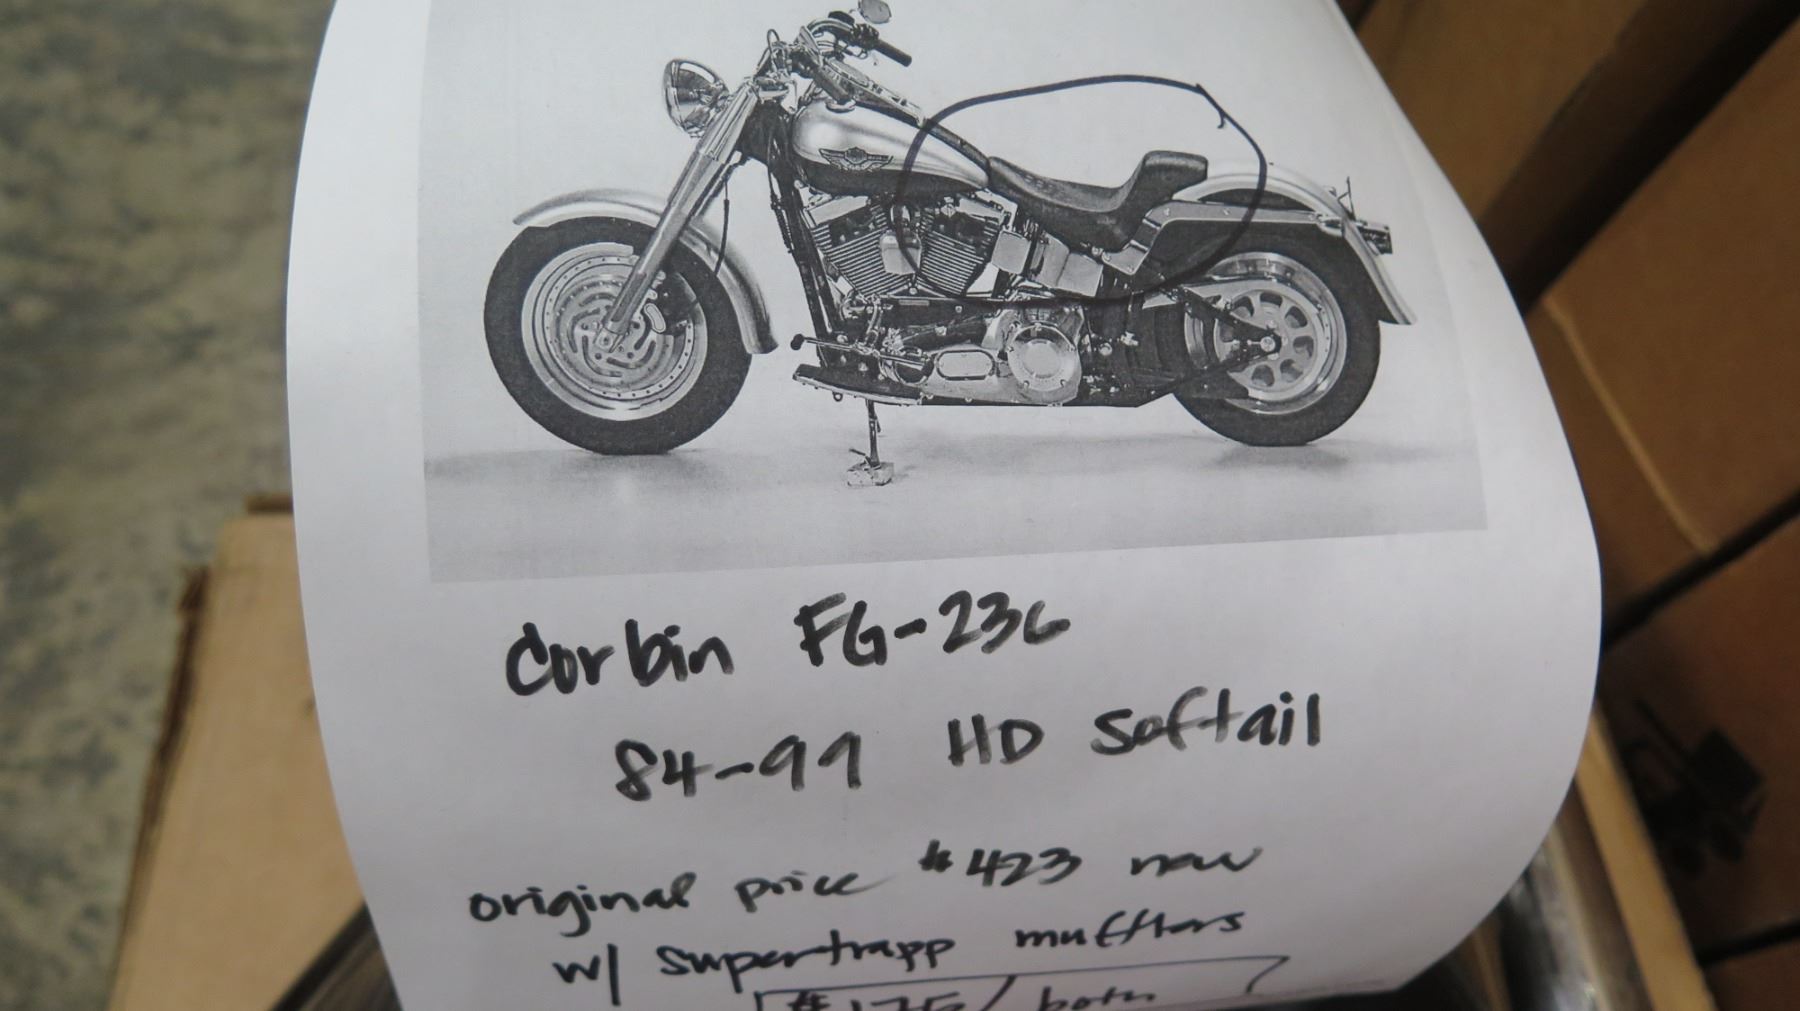 Corbin FG-236
84-99 HD Softail
original price $423 new
w/ supertrapp mufflers
$175/both